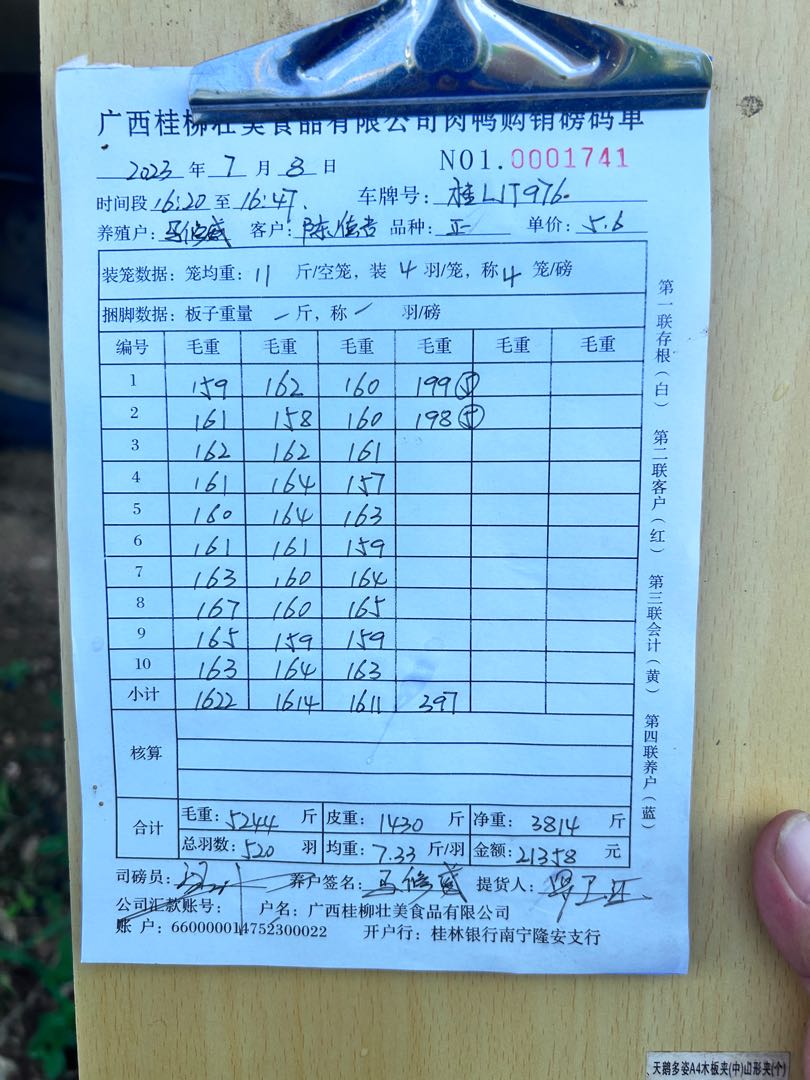 广西桂柳壮美食品有限公司肉鸭购销磅码单
2023 年 7 月 8 日 NO1.0001741
时间段 16:20 至 16:47. 车牌号: 桂LJT976
养殖户: 马修威 客户: 陈 品种: 正 单价: 5.6
装笼数据: 笼均重: 11 斤/空笼, 装 4 羽/笼, 称 4 笼/磅
捆脚数据: 板子重量 一 斤, 称 一 羽/磅
编号 毛重 毛重 毛重 毛重 毛重 毛重
1 159 162 160 199⑤
2 161 158 160 198⑤
3 162 162 161
4 161 164 157
5 160 164 163
6 161 161 159
7 163 160 164
8 167 160 165
9 165 159 159
10 163 164 163
小计 1622 1614 1611 397
核算
合计 毛重: 5244 斤 皮重: 1430 斤 净重: 3814 斤
总羽数: 520 羽 均重: 7.33 斤/羽 金额: 21358 元
司磅员: 养户签名: 马修威 提货人:
公司汇款账号: 户名: 广西桂柳壮美食品有限公司
账 户: 660000014752300022 开户行: 桂林银行南宁隆安支行
第一联存根(白) 第二联客户(红) 第三联会计(黄) 第四联养户(蓝)
天鹅多姿A4木板夹(中)山形夹(个)